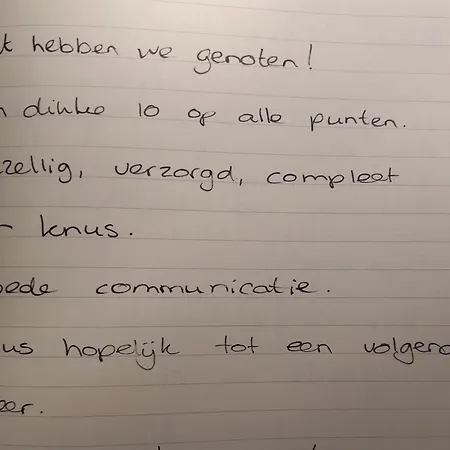 t hebben we genoten!
n dikke 10 op alle punten.
zellig, verzorgd, compleet
- knus.
oede communicatie.
us hopelijk tot een volgend
eer.